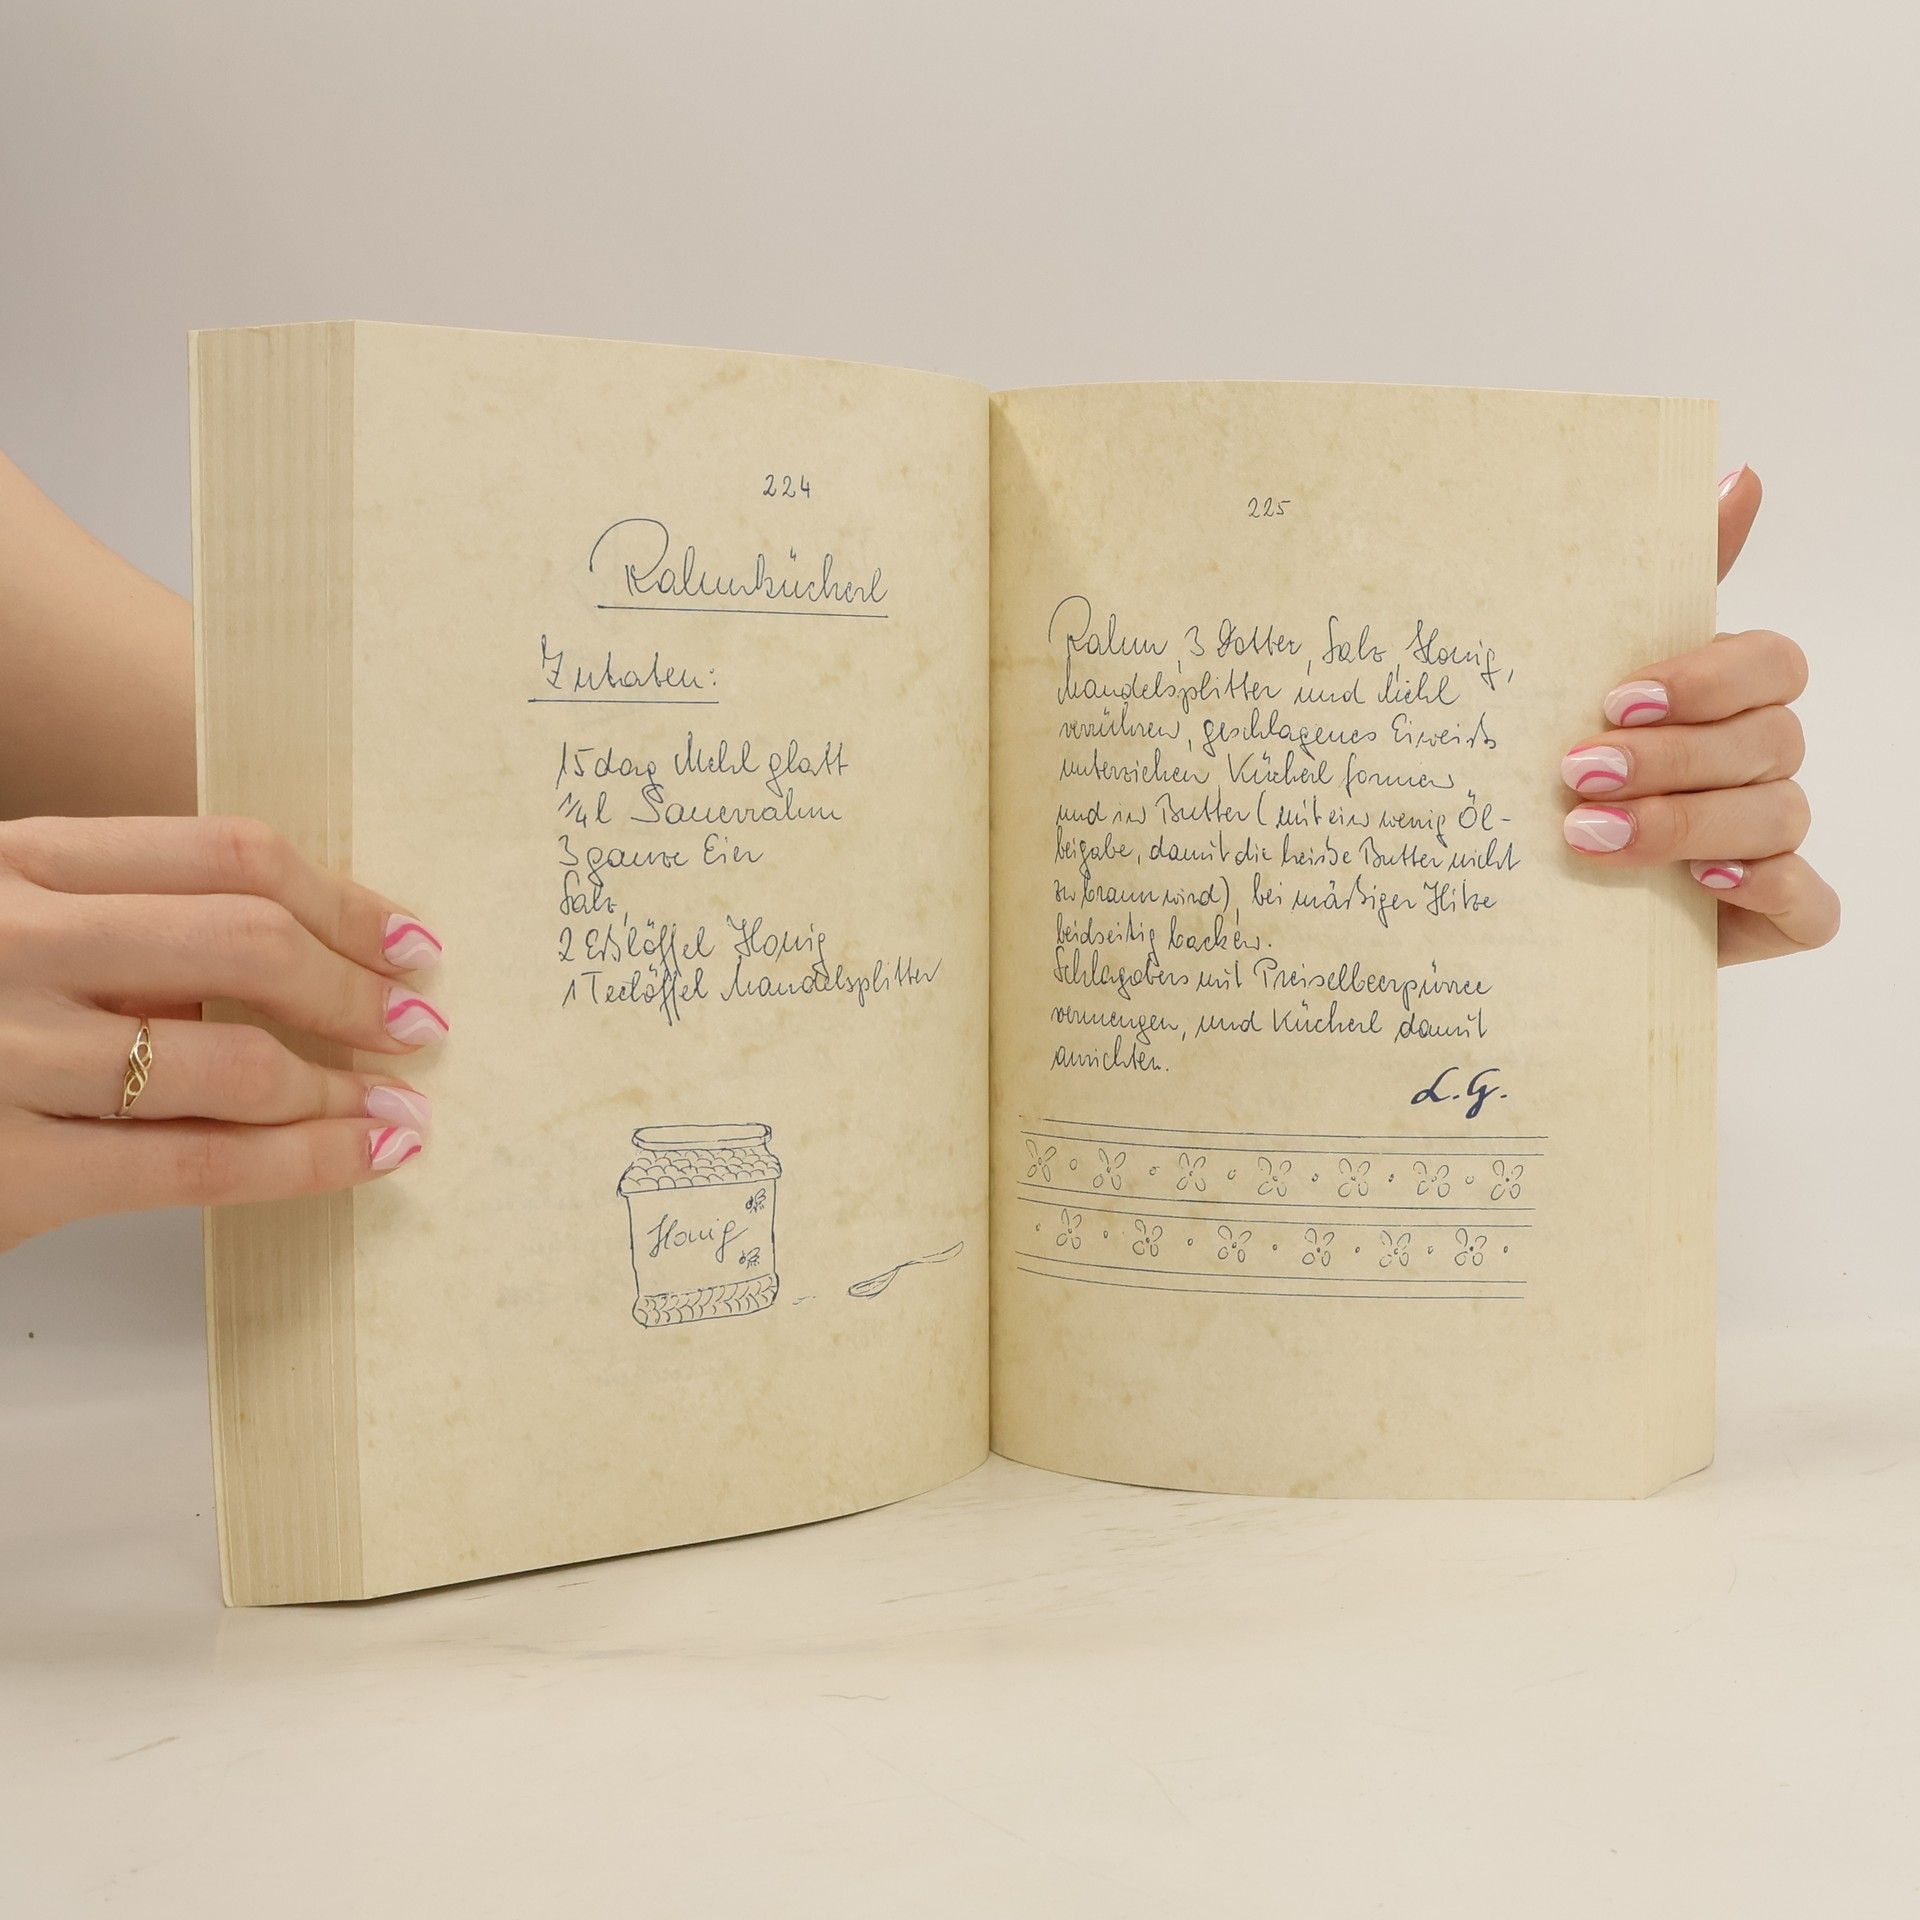 224
Rahmkücherl
Zutaten:
15 dag Mehl glatt
1/4 l Sauerrahm
3 ganze Eier
Salz,
2 Eßlöffel Honig
1 Teelöffel Mandelsplitter
Honig
225
Rahm, 3 Dotter, Salz, Honig,
Mandelsplitter und Mehl
verrühren, geschlagenes Eiweiß
unterziehen, Kücherl formen
und in Butter (mit ein wenig Öl-
beigabe, damit die heiße Butter nicht
zu braun wird), bei mäßiger Hitze
beidseitig backen.
Schlagobers mit Preiselbeerpürree
vermengen, und Kücherl damit
anrichten.
L.G.